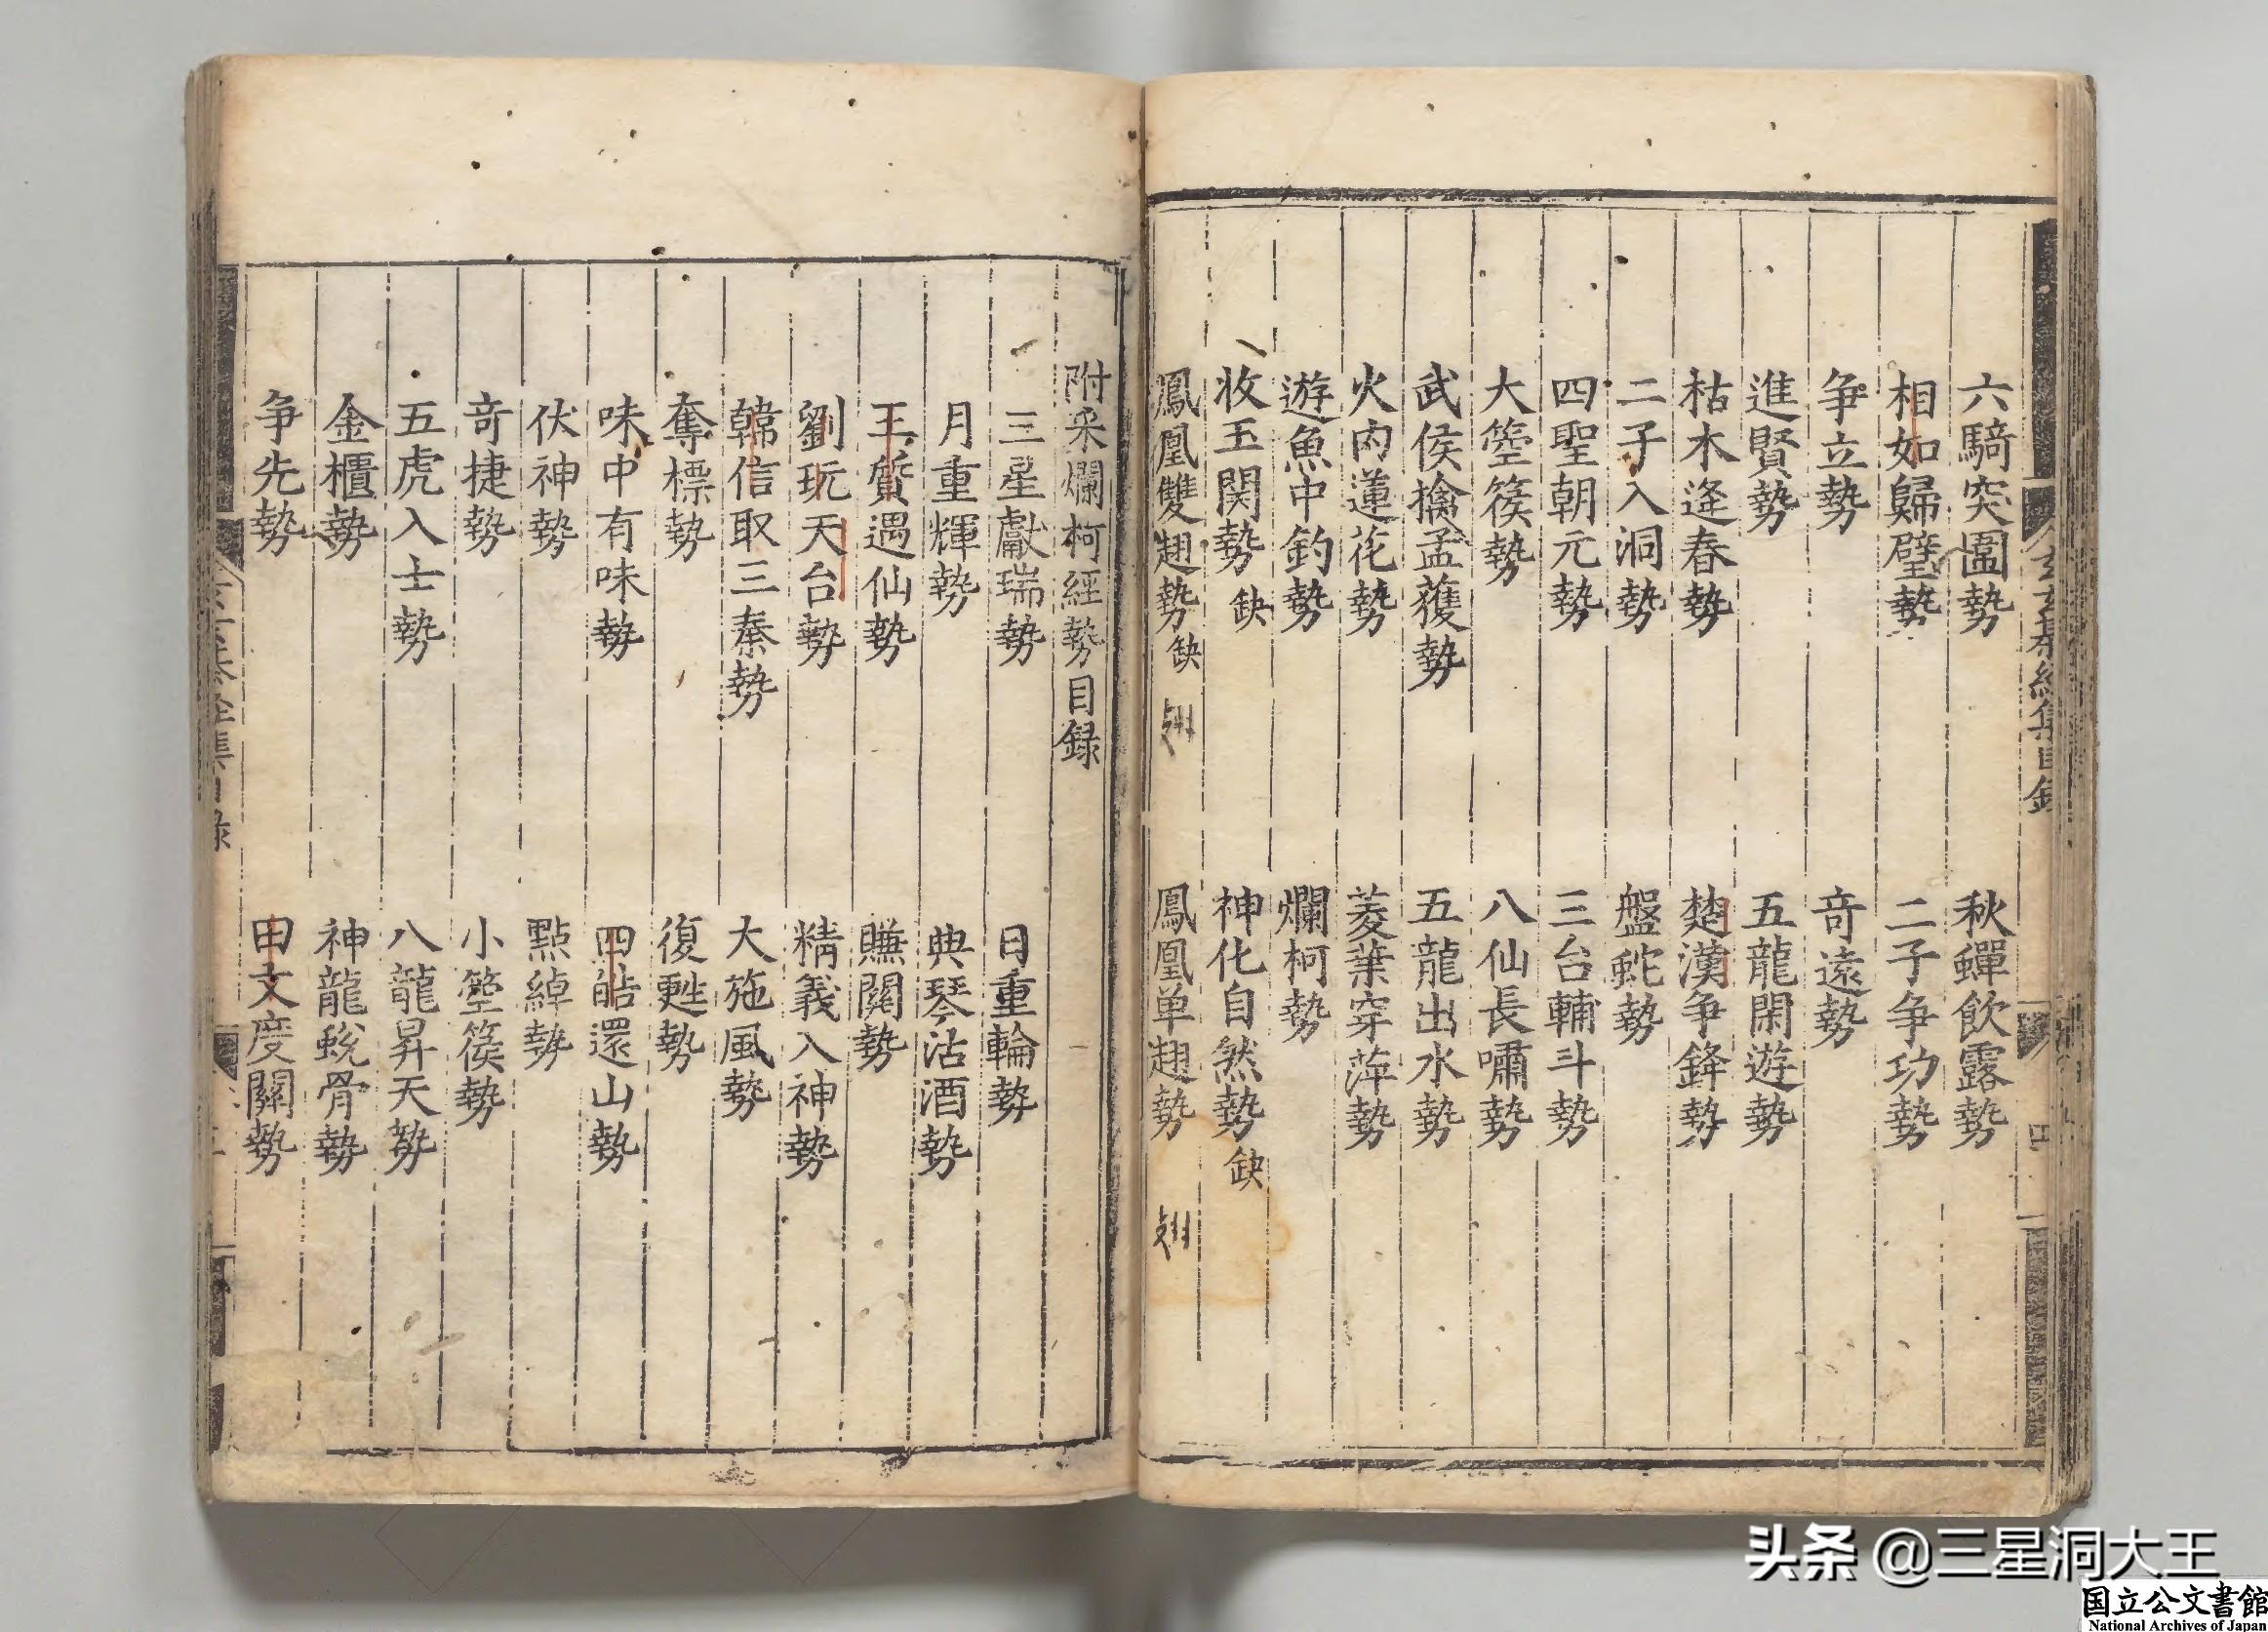 六騎突圍勢 秋蟬飲露勢
相如歸璧勢 二子争功勢
争立勢 竒遠勢
進賢勢 五龍閑遊勢
枯木逢春勢 楚漢争鋒勢
二子入洞勢 盤蛇勢
四聖朝元勢 三台輔斗勢
大箜篌勢 八仙長嘯勢
武侯擒孟獲勢 五龍出水勢
火内蓮花勢 菱葉穿萍勢
遊魚中釣勢 爛柯勢
收玉関勢 缺 神化自然勢 缺
鳳凰雙翅勢 缺 翅 鳳凰单翅勢 翅
附采爛柯經勢目録
三星獻瑞勢 日重輪勢
月重輝勢 典琴沽酒勢
王質遇仙勢 賺関勢
劉玩天台勢 精義入神勢
韓信取三秦勢 大旋風勢
奪標勢 復甦勢
味中有味勢 四皓還山勢
伏神勢 點綽勢
竒捷勢 小箜篌勢
五虎入士勢 八龍昇天勢
金櫃勢 神龍蛻骨勢
争先勢 田文度關勢
头条 @三星洞大王
国立公文書館
National Archives of Japan